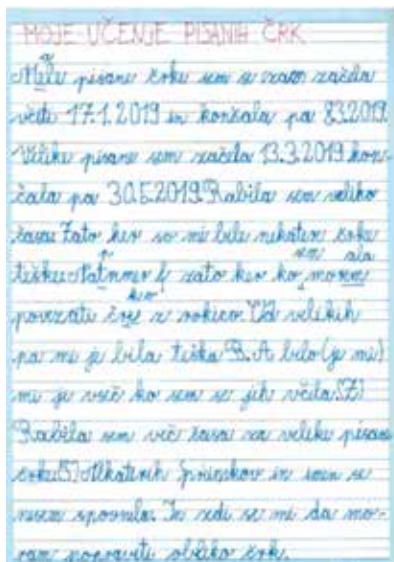 MOJE UČENJE PISANIH ČRK
Male pisane črke sem se začela
učiti 17.1.2019 in končala pa 8.3.2019.
Velike pisane sem začela 13.3.2019 kon-
čala pa 30.5.2019. Rabila sem veliko
časa. Zato ker so mi bile nekatere črke
sem ala
teške. Naprimer f zato ker ko moram
ker
povezati črke z rokico. Od velikih
pa mi je bila teška B. A bilo (je mi)
mi je všeč ko sem se jih učila.
Rabila sem več časa za velike pisane
črke. Nekaterih priimkov in imen se
nisem spomnila. In zdi se mi da mo-
ram popraviti obliko črk.